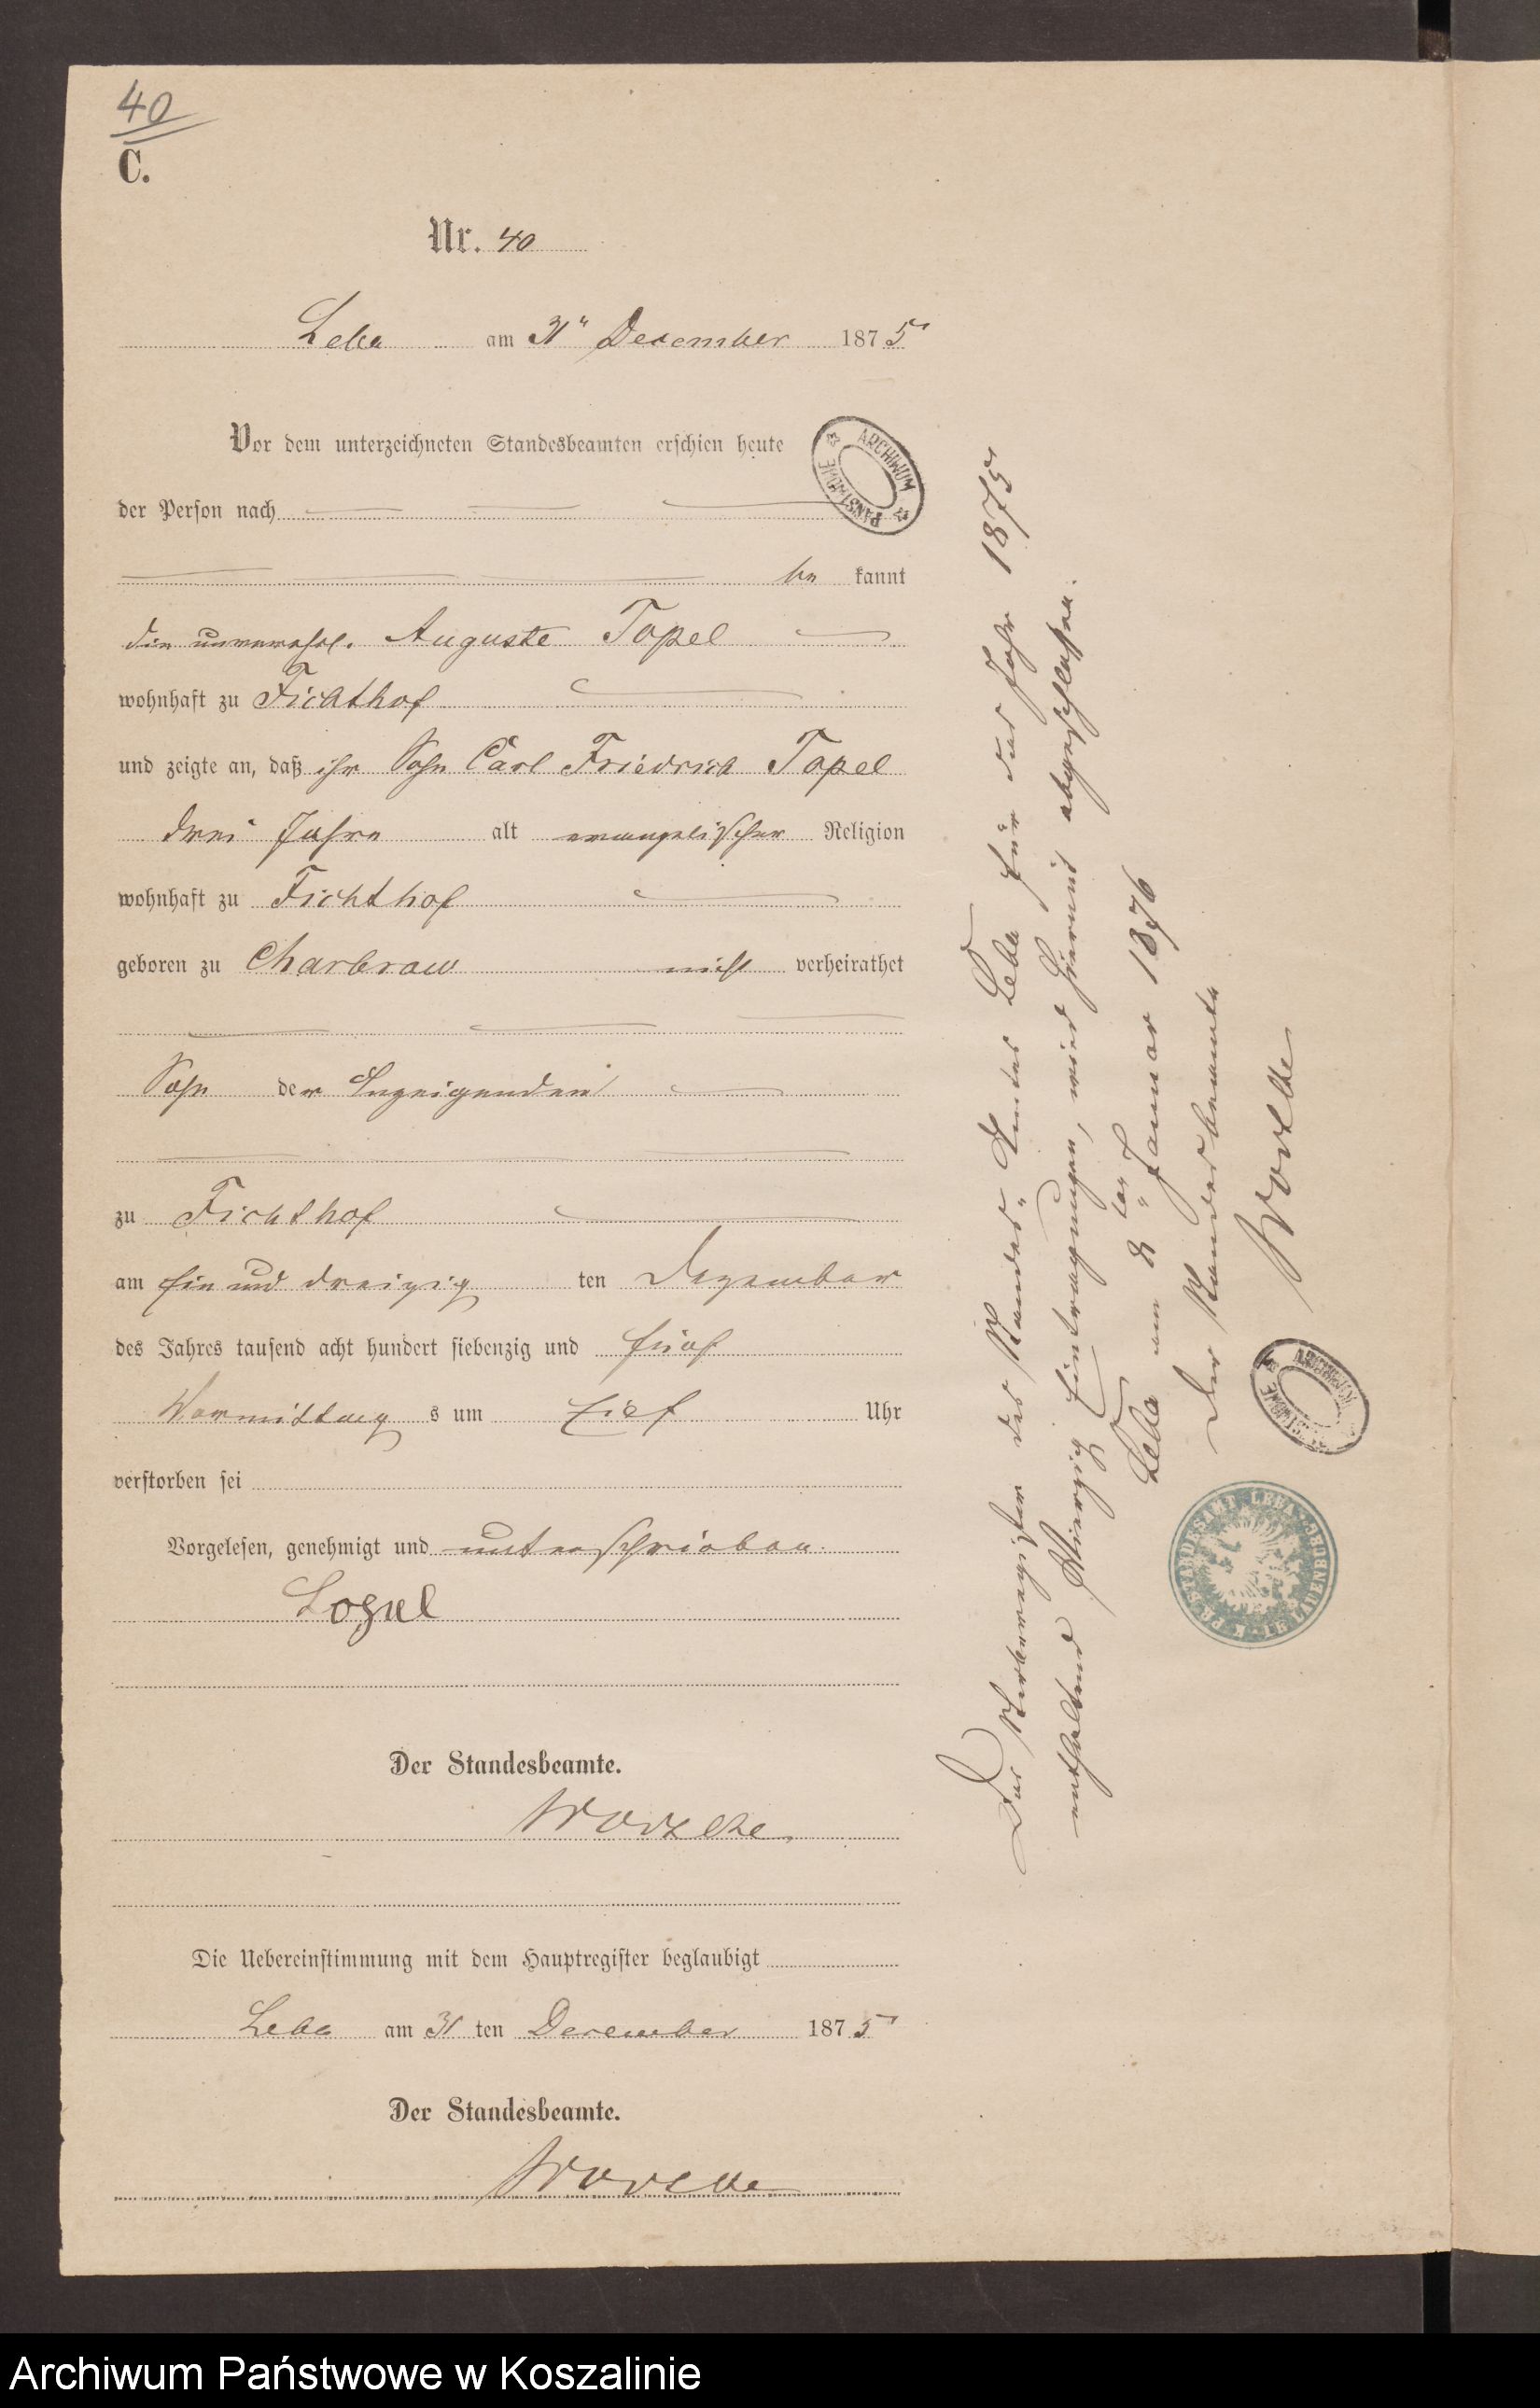 40
C.
Nr. 40
Leba am 31" December 1875
Vor dem unterzeichneten Standesbeamten erschien heute
der Person nach
be kannt
die unverehel. Auguste Topel
wohnhaft zu Fichthof
und zeigte an, daß ihr Sohn Carl Friedrich Topel
drei Jahre alt evangelischer Religion
wohnhaft zu Fichthof
geboren zu Charbrow nicht verheirathet
Sohn der Anzeigenden
zu Fichthof
am ein und dreizig ten Dezember
des Jahres tausend acht hundert siebenzig und fünf
Vormittag s um Uhr
verstorben sei
Vorgelesen, genehmigt und unterschrieben.
Der Standesbeamte.
Die Uebereinstimmung mit dem Hauptregister beglaubigt
Leba am 31 ten December 1875
Der Standesbeamte.
Das Sterberegister des Standes-Amtes Leba für das Jahr 1875
enthaltend Vierzig Eintragungen, wird hiermit abgeschlossen.
Leba am 2 ten Januar 1876
Der Standesbeamte
ARCHIWUM PAŃSTWOWE
ARCHIWUM PAŃSTWOWE
K. PR. STANDESAMT LEBA
Archiwum Państwowe w Koszalinie